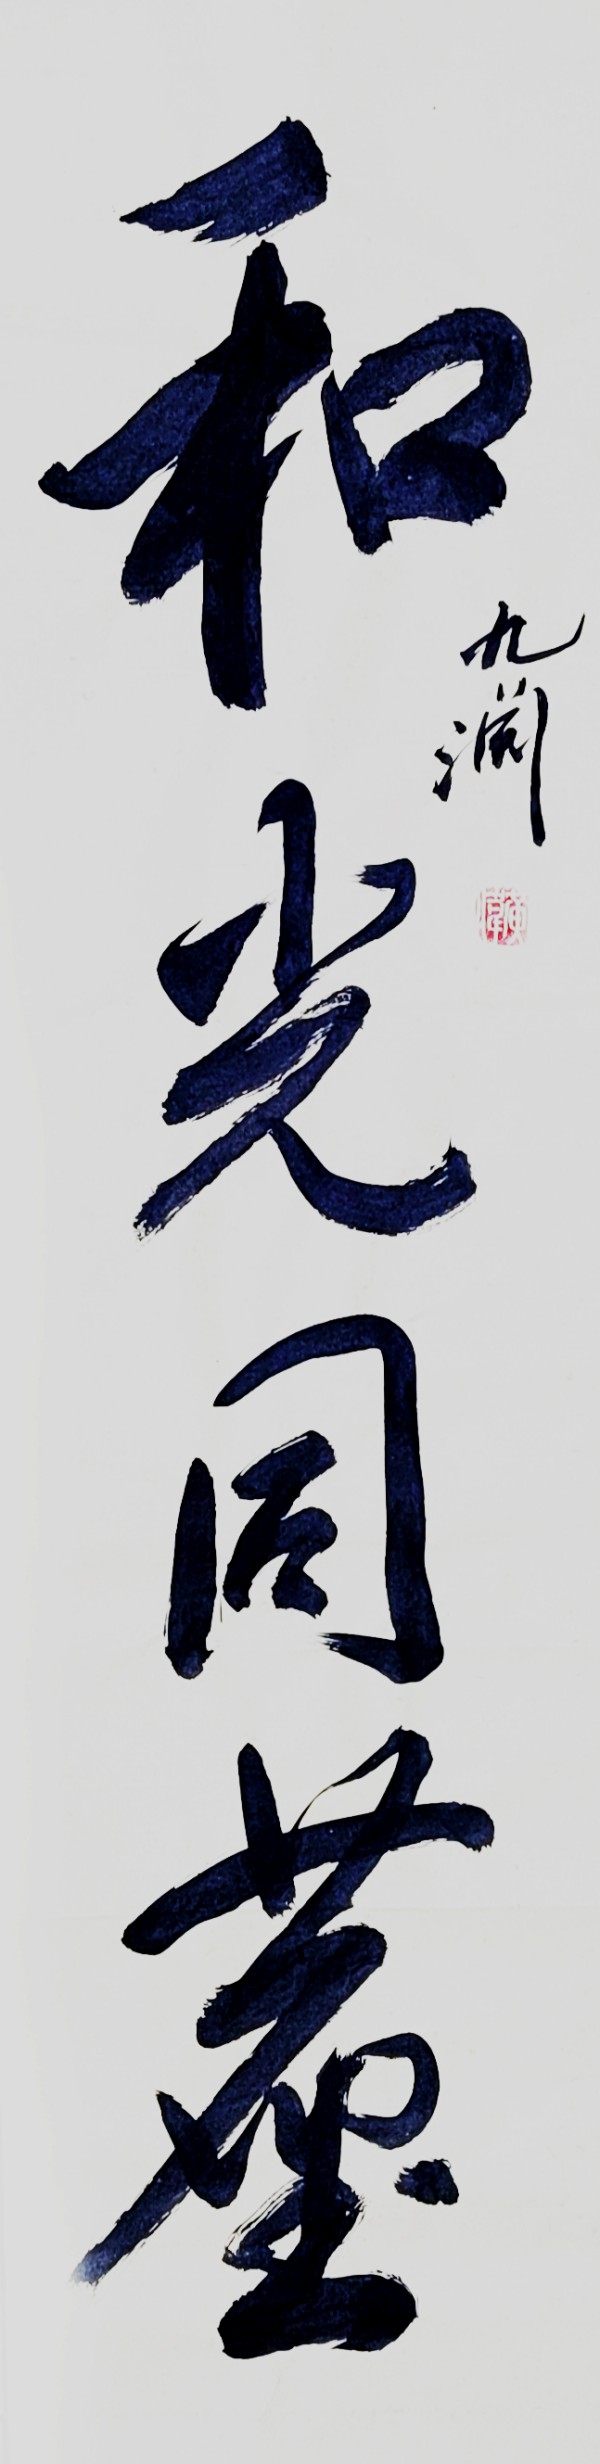 和光同塵
九淵